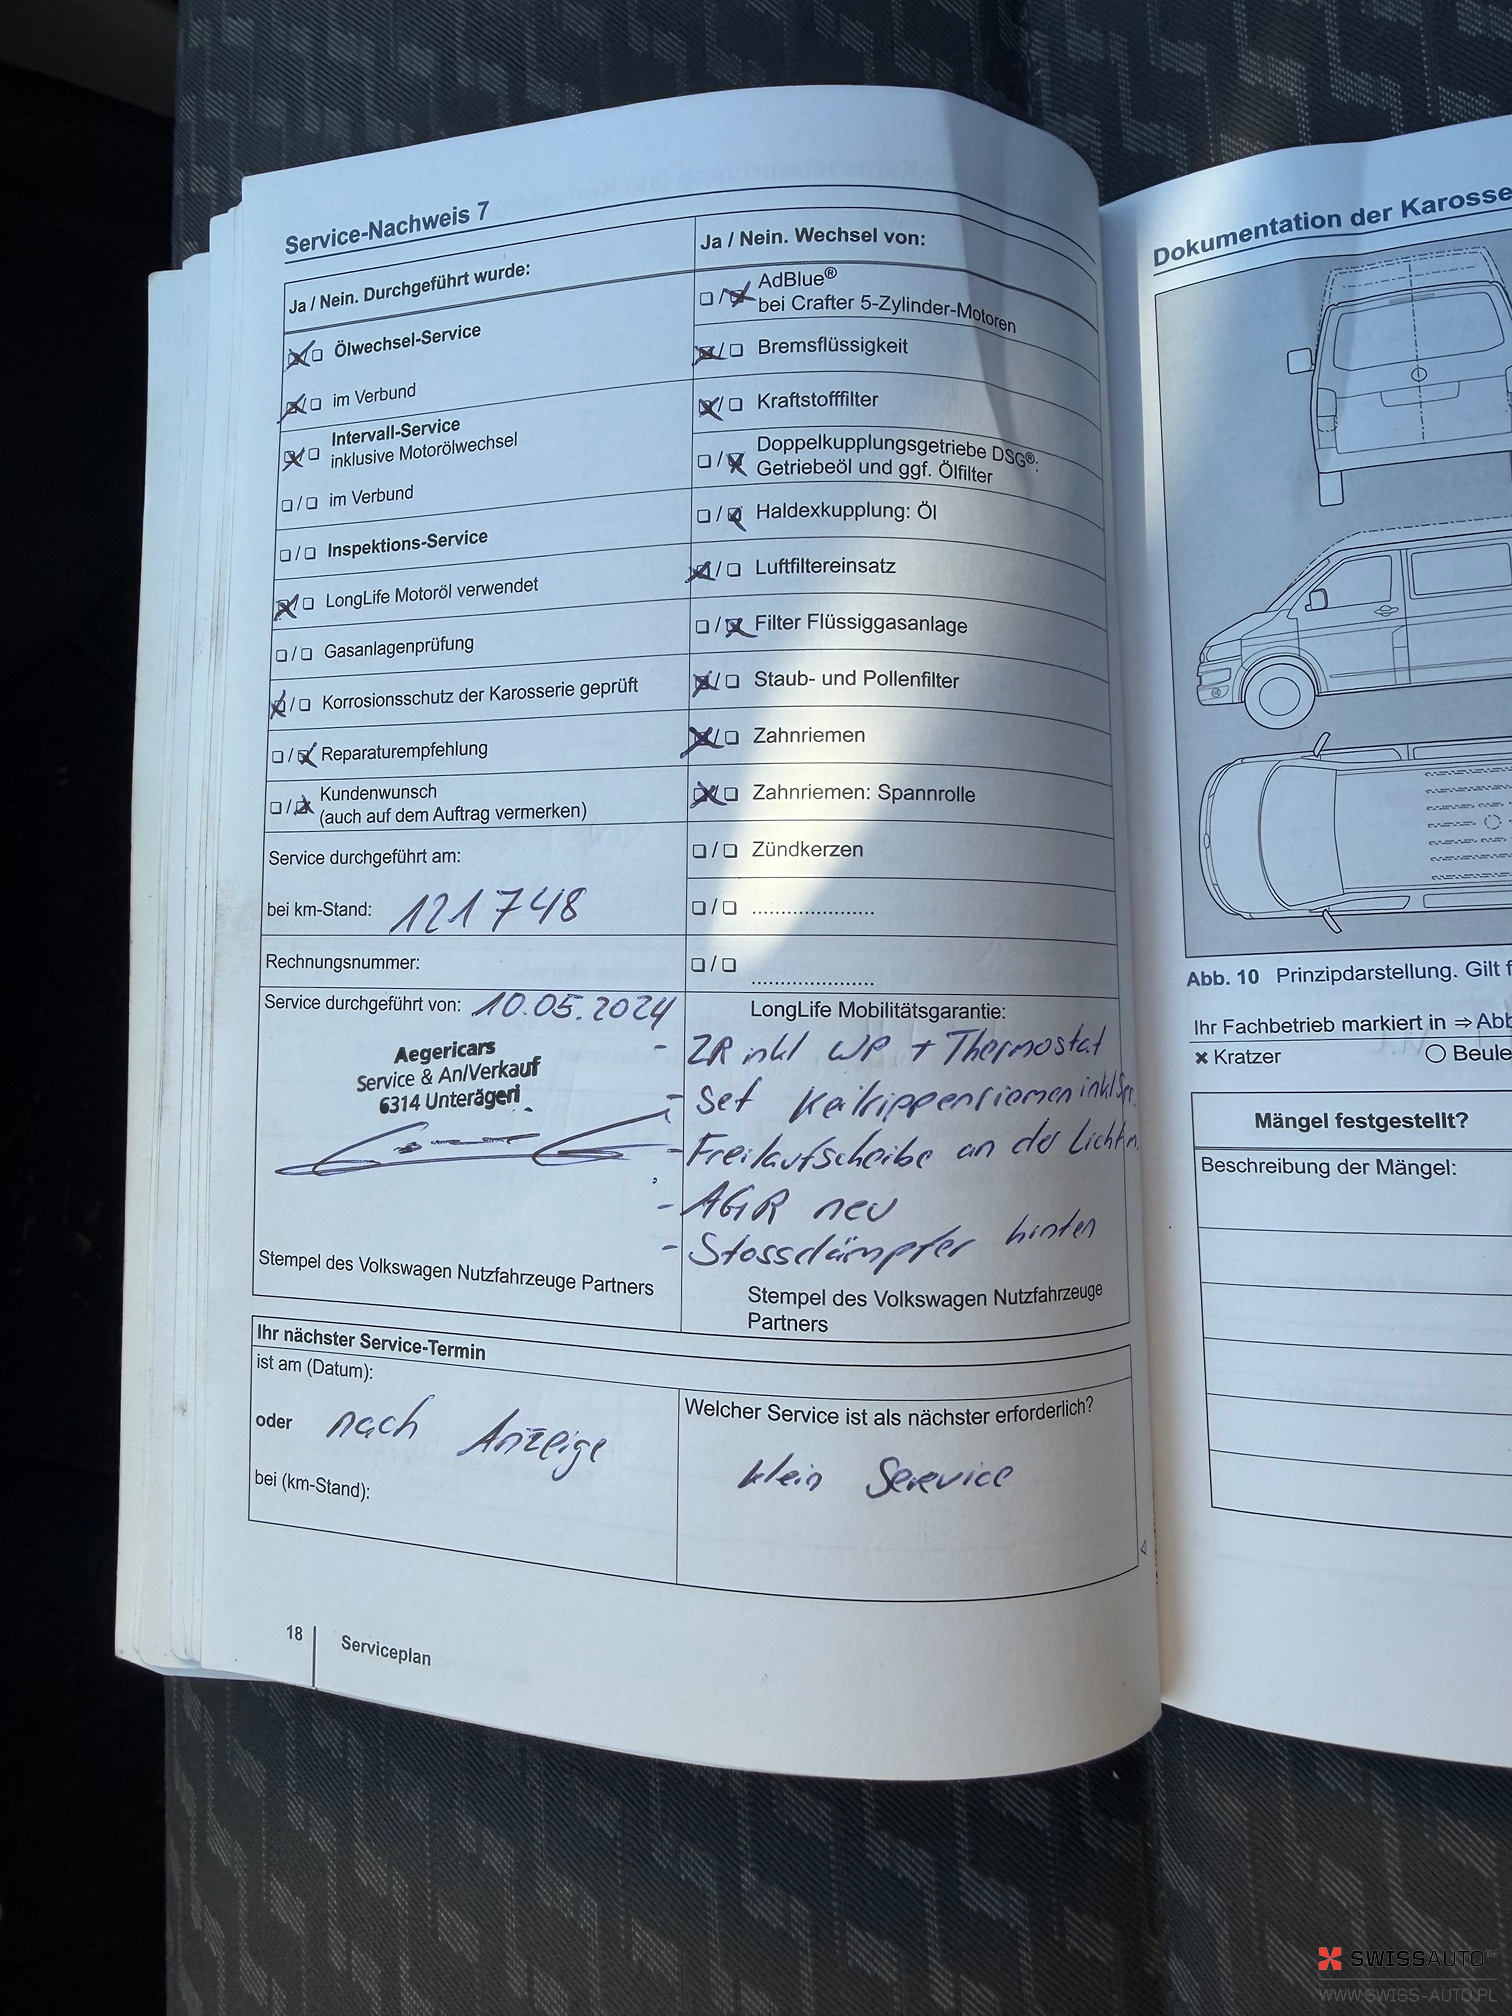 Service-Nachweis 7
Ja / Nein. Durchgeführt wurde:
☒/❏ Ölwechsel-Service
☒/❏ im Verbund
☒/❏ Intervall-Service
inklusive Motorölwechsel
❏/❏ im Verbund
❏/❏ Inspektions-Service
☒/❏ LongLife Motoröl verwendet
❏/❏ Gasanlagenprüfung
☒/❏ Korrosionsschutz der Karosserie geprüft
❏/☒ Reparaturempfehlung
❏/☒ Kundenwunsch
(auch auf dem Auftrag vermerken)
Service durchgeführt am:
bei km-Stand: 121748
Rechnungsnummer:
Service durchgeführt von: 10.05.2024
Aegericars
Service & An/Verkauf
6314 Unterägeri
Stempel des Volkswagen Nutzfahrzeuge Partners
Ja / Nein. Wechsel von:
❏/☒ AdBlue®
bei Crafter 5-Zylinder-Motoren
☒/❏ Bremsflüssigkeit
☒/❏ Kraftstofffilter
❏/☒ Doppelkupplungsgetriebe DSG®:
Getriebeöl und ggf. Ölfilter
❏/☒ Haldexkupplung: Öl
☒/❏ Luftfiltereinsatz
❏/☒ Filter Flüssiggasanlage
☒/❏ Staub- und Pollenfilter
☒/❏ Zahnriemen
☒/❏ Zahnriemen: Spannrolle
❏/❏ Zündkerzen
❏/❏ ......................
❏/❏ ......................
LongLife Mobilitätsgarantie:
- ZR inkl WP + Thermostat
- Set Keilrippenriemen inkl
- Freilaufscheibe an der Lichtm.
- AGR neu
- Stossdämpfer hinten
Stempel des Volkswagen Nutzfahrzeuge
Partners
Ihr nächster Service-Termin
ist am (Datum):
oder nach Anzeige
bei (km-Stand):
Welcher Service ist als nächster erforderlich?
klein Serevice
18 Serviceplan
Dokumentation der Karosse
Abb. 10 Prinzipdarstellung. Gilt f
Ihr Fachbetrieb markiert in ⇒ Abb
✖ Kratzer ○ Beule
Mängel festgestellt?
Beschreibung der Mängel:
SWISSAUTO
WWW.SWISS-AUTO.PL